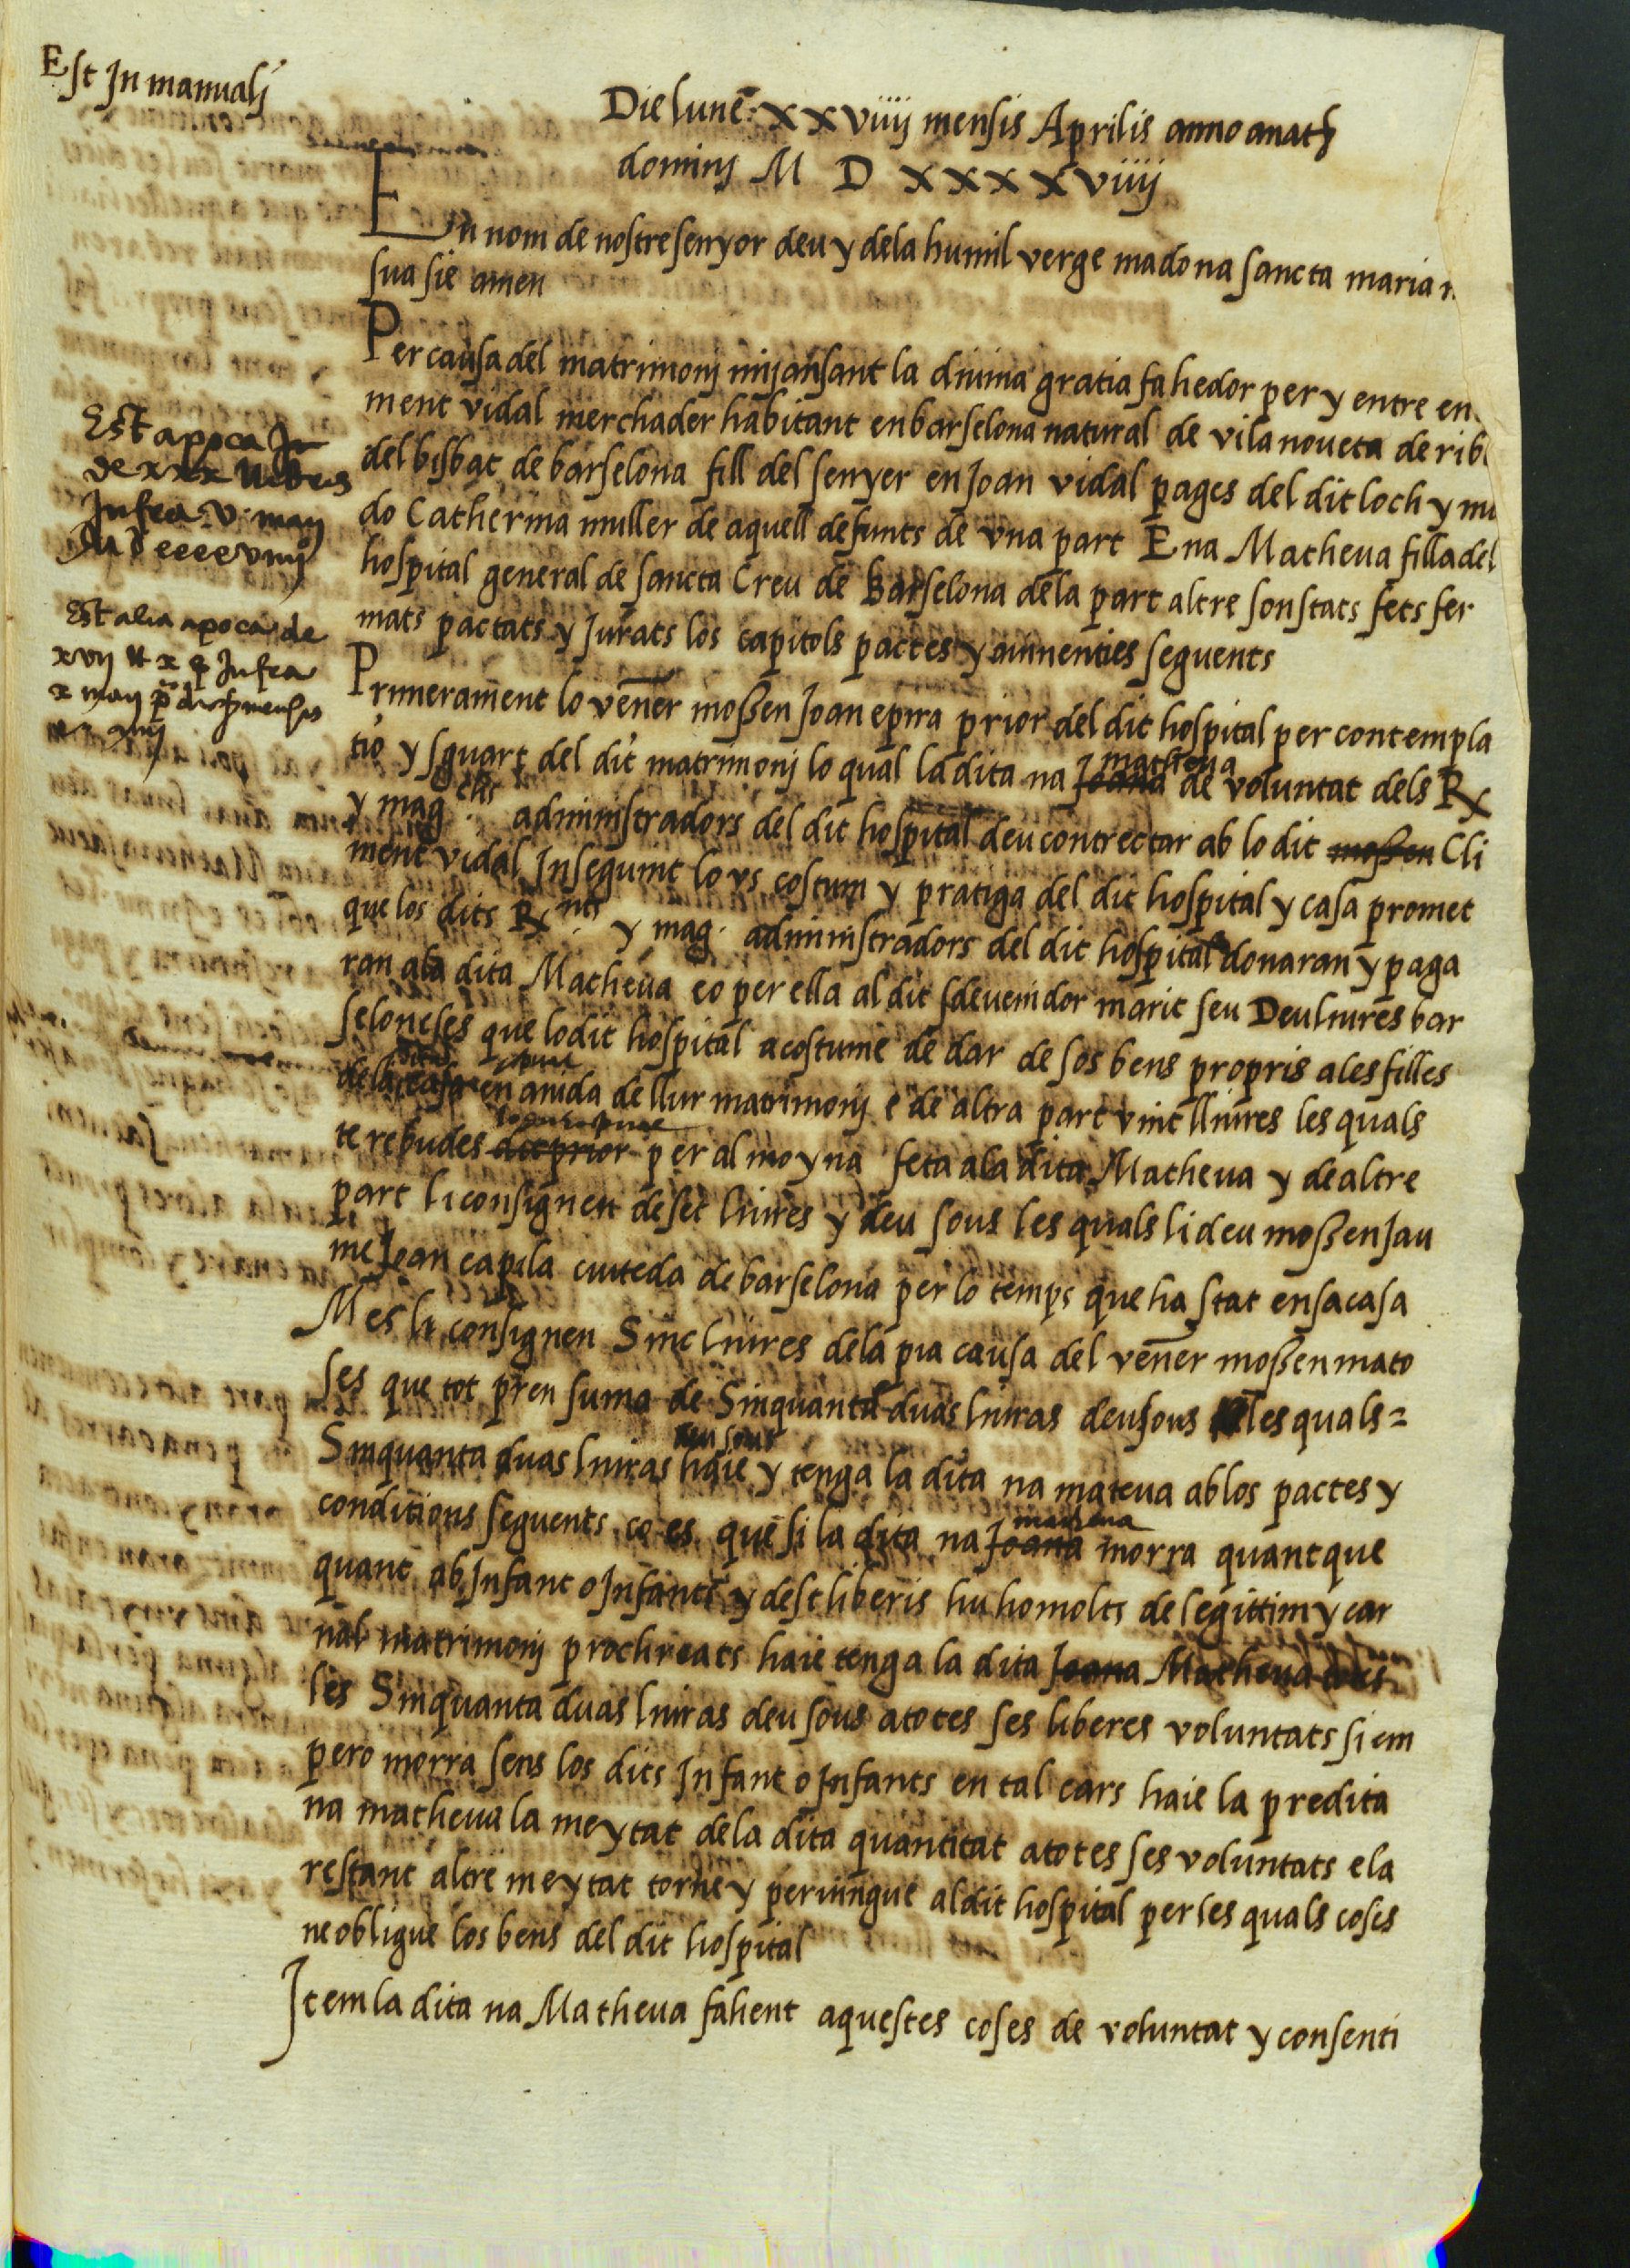 Est Jn manualj
Die lune xxviiij mensis Aprilis anno anatj
dominj M D xxxxviiij
En nom de nostre senyor deu y dela humil verge madona sancta maria
sua sie amen
Per causa del matrimonj mijansant la divina gratia fahedor per y entre en
ment vidal merchader habitant en barselona natural de vilanoveta de rib
del bisbat de barselona fill del senyer en Joan vidal pages del dit loch y
do Catherina muller de aquell defuncts de vna part E na Matheva filla del
hospital general de sancta Creu de Barselona dela part altre son stats fets fer
mats pactats y Jurats los capitols pactes y avinenties seguents
Est apoca
de xxx
Infra v may
M D eeeeviiij
Est alia apoca de
xvij ll x Infra
x may
Primerament lo vener mossen Joan epira prior del dit hospital per contempla
tio y sguart del dit matrimonj lo qual la dita na Joana matheva de voluntat dels Rx
y mag administradors del dit hospital deu contrectar ab lo dit mossen Cli
ment vidal Inseguint lo vs costum y pratiga del dit hospital y casa promet
que los dits Rx nts y mag administradors del dit hospital donaran y paga
ran ala dita Matheva eo per ella al dit sdevenidor marit seu Deu liures bar
seloneses que lo dit hospital acostume de dar de sos bens propris ales filles
dela casa en aiuda de llur matrimonj e de altra part vint lliures les quals
te rebudes dit prior per almoyna feta ala dita Matheva y de altre
part li consignen deset liures y deu sous les quals li deu mossen Jau
me Joan capila ciuteda de barselona per lo temps que ha stat en sa casa
Mes li consignen Sinc liures dela pia causa del vener mossen mato
ses que tot pren suma de Sinquanta duas liuras deu sous les quals =
Sinquanta duas liuras deu sous haie y tenga la dita na mateva ab los pactes y
conditions seguents ço es que si la dita na Joana matheva morra quant que
quant ab Infant o Infants y dest liberis hu ho molts de legittim y car
nal matrimonj prochreats haie tenga la dita Joana Matheva
les Sinquanta duas liuras deu sous a totes ses liberes voluntats si em
pero morra sens los dits Infant o Infants en tal cars haie la predita
na matheva la meytat dela dita quantitat a totes ses voluntats e la
restant altre meytat torne y pervingue al dit hospital per les quals coses
ne obligue los bens del dit hospital
Item la dita na Matheva fahent aquestes coses de voluntat y consenti